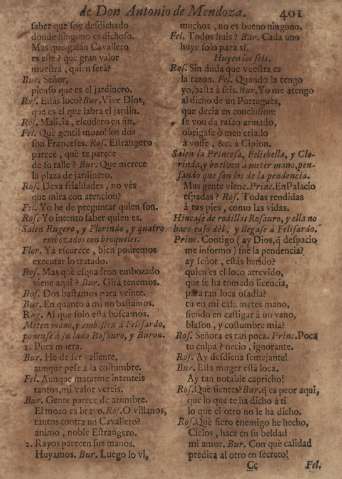 de Don Antonio de Mendoza. 401
saber que soy desdichado
donde ninguno es dichoso.
Mas que gallan Cavallero
es este? que gran valor
muestra, quien será?
Bur. Señor,
pienso que es el jardinero.
Ros. Estàs loco? Bur. Vive Dios,
que es el que labra el jardin.
Ros. Malicia, escudero en fin.
Fel. Què gentil moço! los dos
son Franceses. Ros. Estrangero
parece, què te parece
de su talle? Bur. Que merece
la plaza de jardinero.
Ros. Dexa frialdades, no vès
que mira con atencion?
Fel. Yo he de preguntar quien son.
Ros. Yo intento saber quien es.
Salen Rugero, y Florindo, y quatro
embozados con broqueles.
Flor. Yà escurece, bien podrèmos
executar lo tratado.
Ros. Mas què esquadron embozado
viene aqui? Bur. Gira tenemos.
Ros. Dos bastamos para veinte.
Bur. En quanto à mi no bastamos.
Rug. Al que solo està buscamos.
Meten mano, y embisten à Felisardo,
ponense à su lado Rosauro, y Buron.
2. Pues muera.
Bur. He de ser valiente,
aunque pese à la costumbre.
Fel. Aunque matarme intenteis
tantos, mi valor vereis.
Bur. Gente parece de
El mozo es bravo. Ros. O villanos,
tantos contra un Cavallero?
animo, noble Estrangero.
2. Rayos parecen sus manos.
Huyamos. Bur. Luego lo vì,
muchos, no es bueno ninguno.
Fel. Todos huìs? Bur. Cada uno
huye solo para sì.
Huyen los seis.
Ros. Sin duda que vuestra es
la razon. Fel. Quando la tengo
yo, basta à seis. Bur. Yo me atengo
al dicho de un Portuguès,
que decia en conclusion:
se vou da razão armado,
obrigaše ò meu criado
à voše, &c. à Cipion.
Salen la Princesa, Felisbella, y Clo-
rinda, y buelven à meter mano, pen-
sando que son los de la pendencia.
Mas gente viene. Princ. En Palacio
espadas? Ros. Todas rendidas
à tus pies, como las vidas.
Hincase de rodillas Rosauro, y ella no
hace caso dèl, y llegase à Felisardo.
Princ. Contigo (ay Dios, què despacio
me informo) fue la pendencia?
ay señor, estàs herido?
quien es el loco atrevido,
que se ha tomado licencia,
para tan loca osadia?
ca en mi casa metes mano,
siendo en castigar à un vano,
blason, y costumbre mia?
Ros. Señora es tan poca. Princ. Poca
tu culpa? necio, ignorante.
Ros. Ay desdicha semejante!
Bur. Esta muger està loca.
Ay tan notable capricho?
Ros. Què sientes? Bur. què es peor aquì,
que lo que te ha dicho à ti
lo que el otro no le ha dicho.
Ros. Què fiero enemigo he hecho,
Cielos, hace en su beldad
mi amor. Bur. Con què calidad
predica al otro en secreto!
Cc Fel.